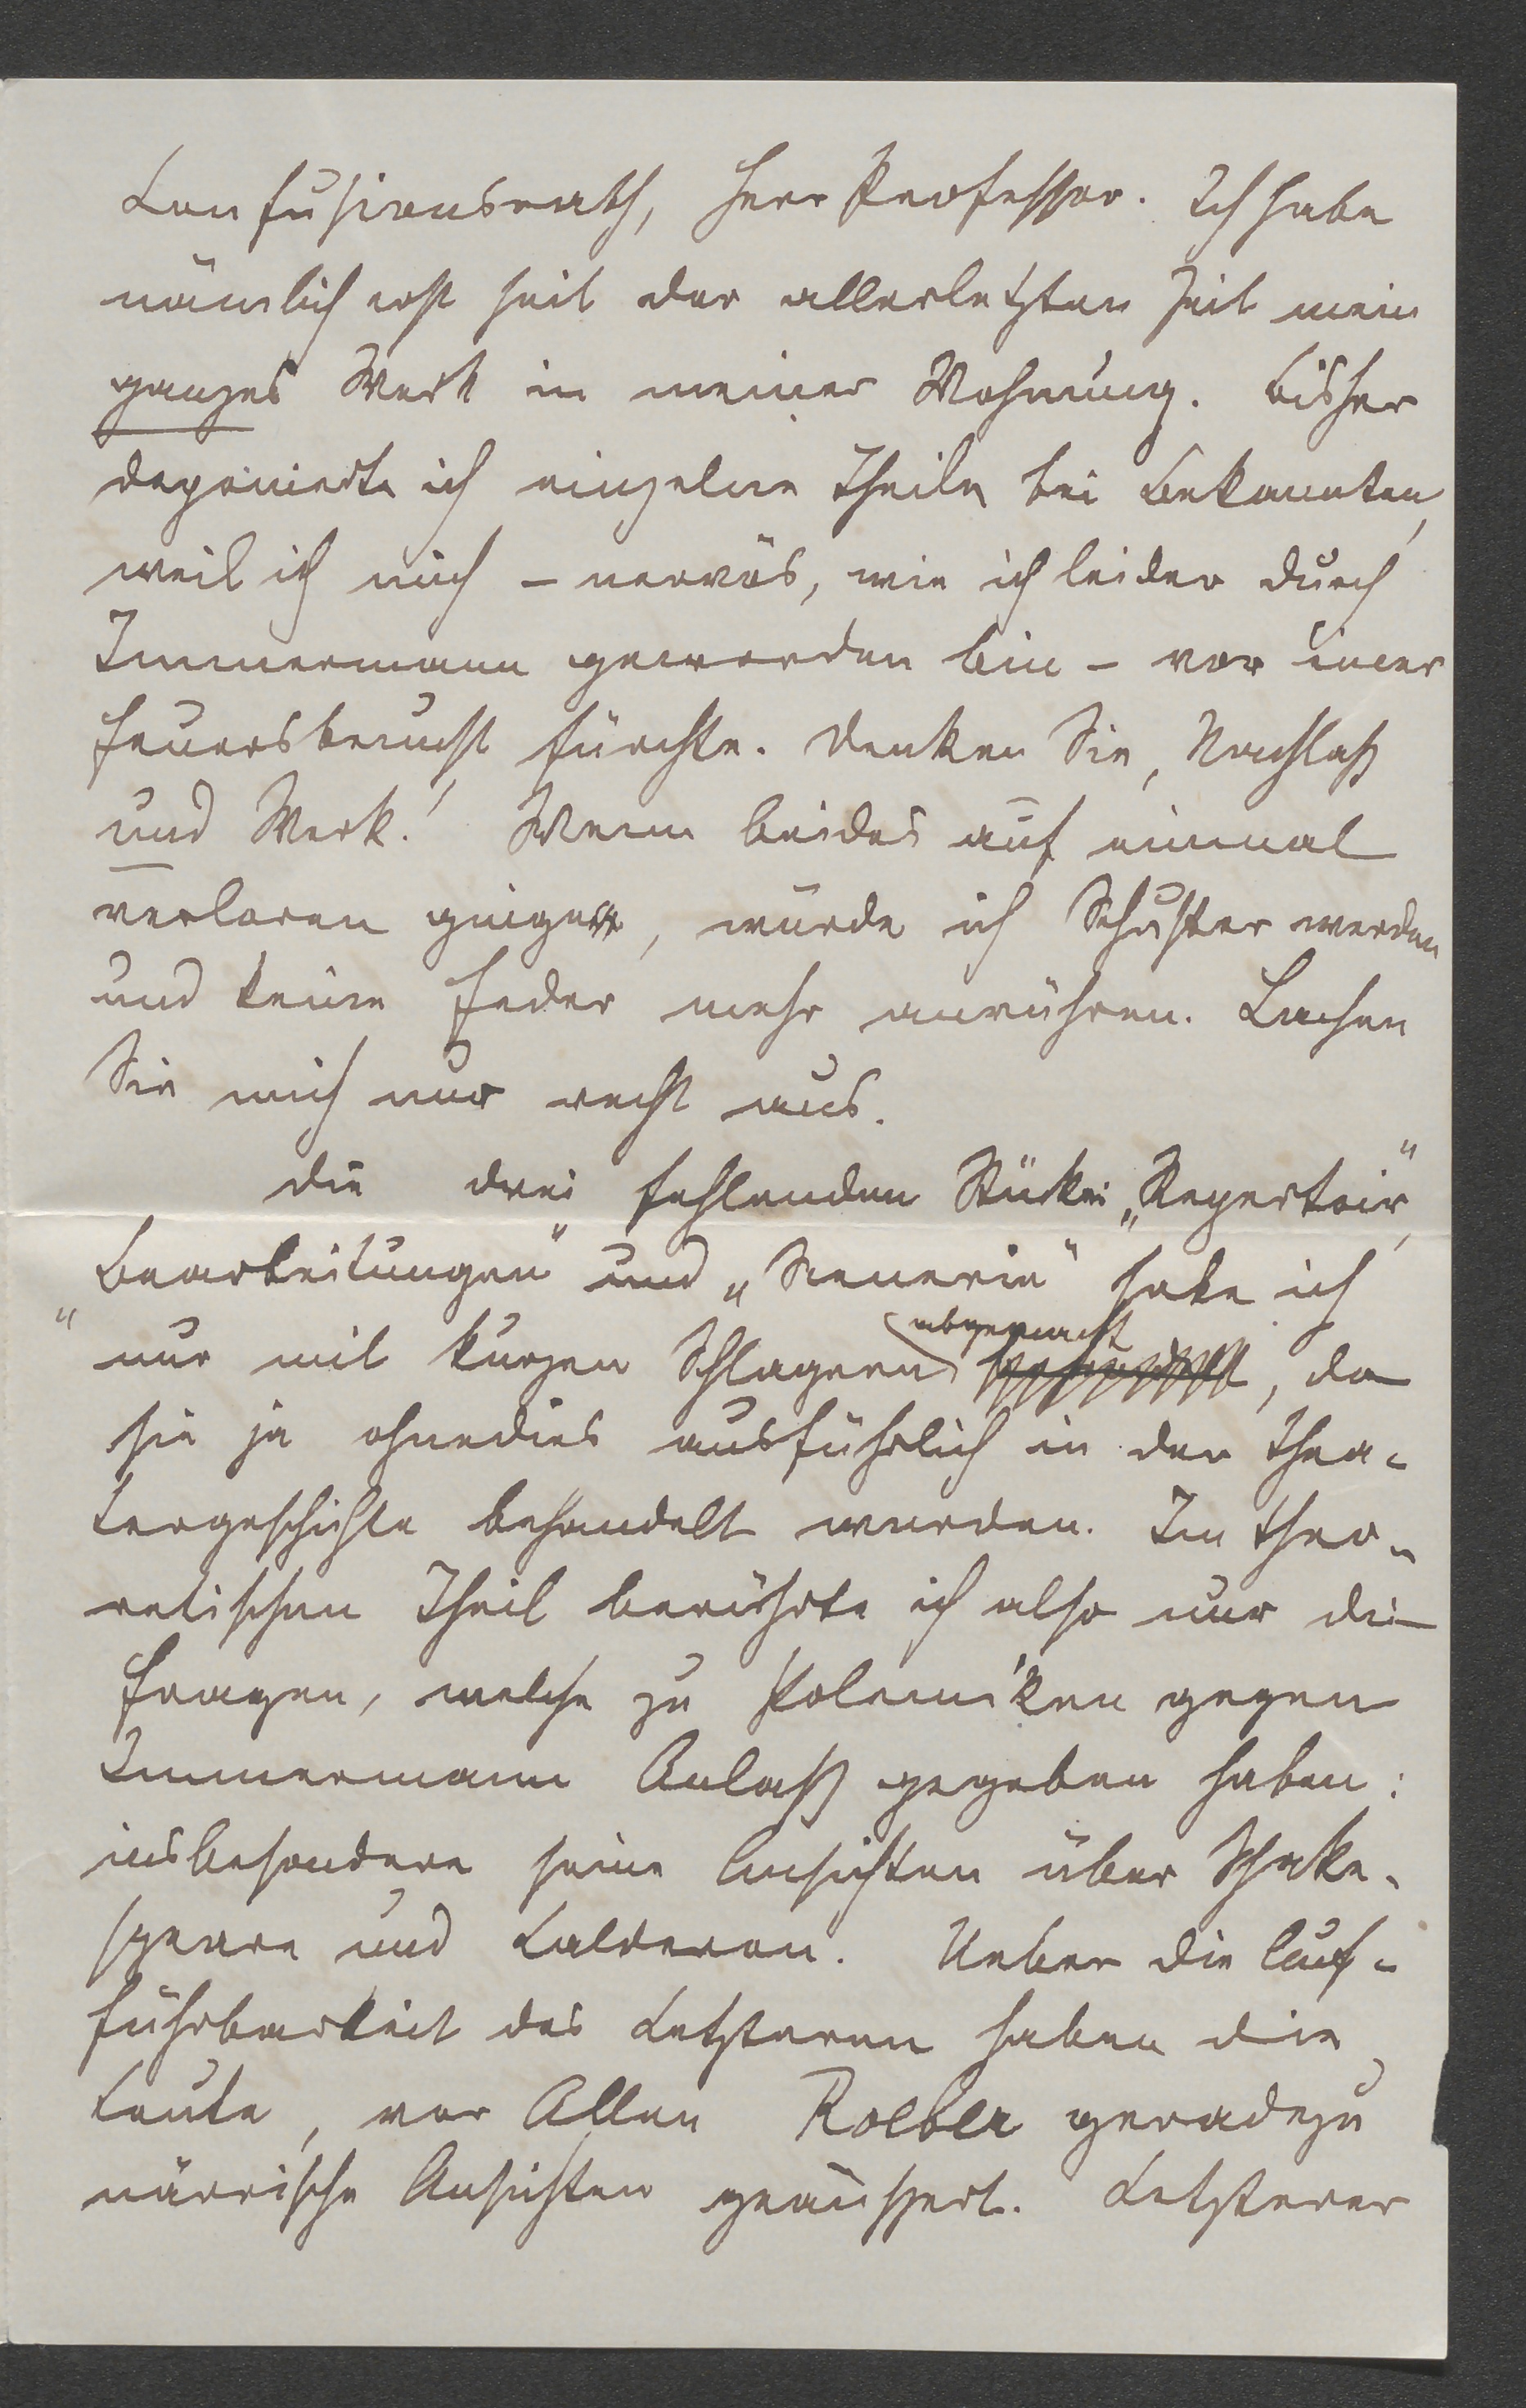 Confusionsrath, Herr Professor. Ich habe
nämlich erst seit der allerletzten Zeit mein
ganzes Werk in meiner Wohnung. Bisher
deponierte ich einzelne Theile bei Bekannten,
weil ich mich – nervös, wie ich leider durch
Immermann geworden bin – vor einer
Feuersbrunst fürchte. Denken Sie, Nachlaß
und Werk! Wenn beides auf einmal
verloren ginge, würde ich Schuster werden
und keine Feder mehr anrühren. Lachen
Sie mich nur recht aus.
Die drei fehlenden Stücke „Repertoir“,
„Bearbeitungen“ und „Scenerie“ habe ich
nur mit kurzen Schlagern abgemacht, da
sie ja ohnedies ausführlich in der Thea-
tergeschichte behandelt wurden. Im theo-
retischen Theil berührte ich also nur die
Fragen, welche zu Polemiken gegen
Immermann Anlaß gegeben haben:
insbesondere seine Ansichten über Shake-
speare und Calderon. Ueber die Auf-
führbarkeit des Letzteren haben die
Leute, vor Allen Roeber geradezu
närrische Ansichten geäussert. Letzterer